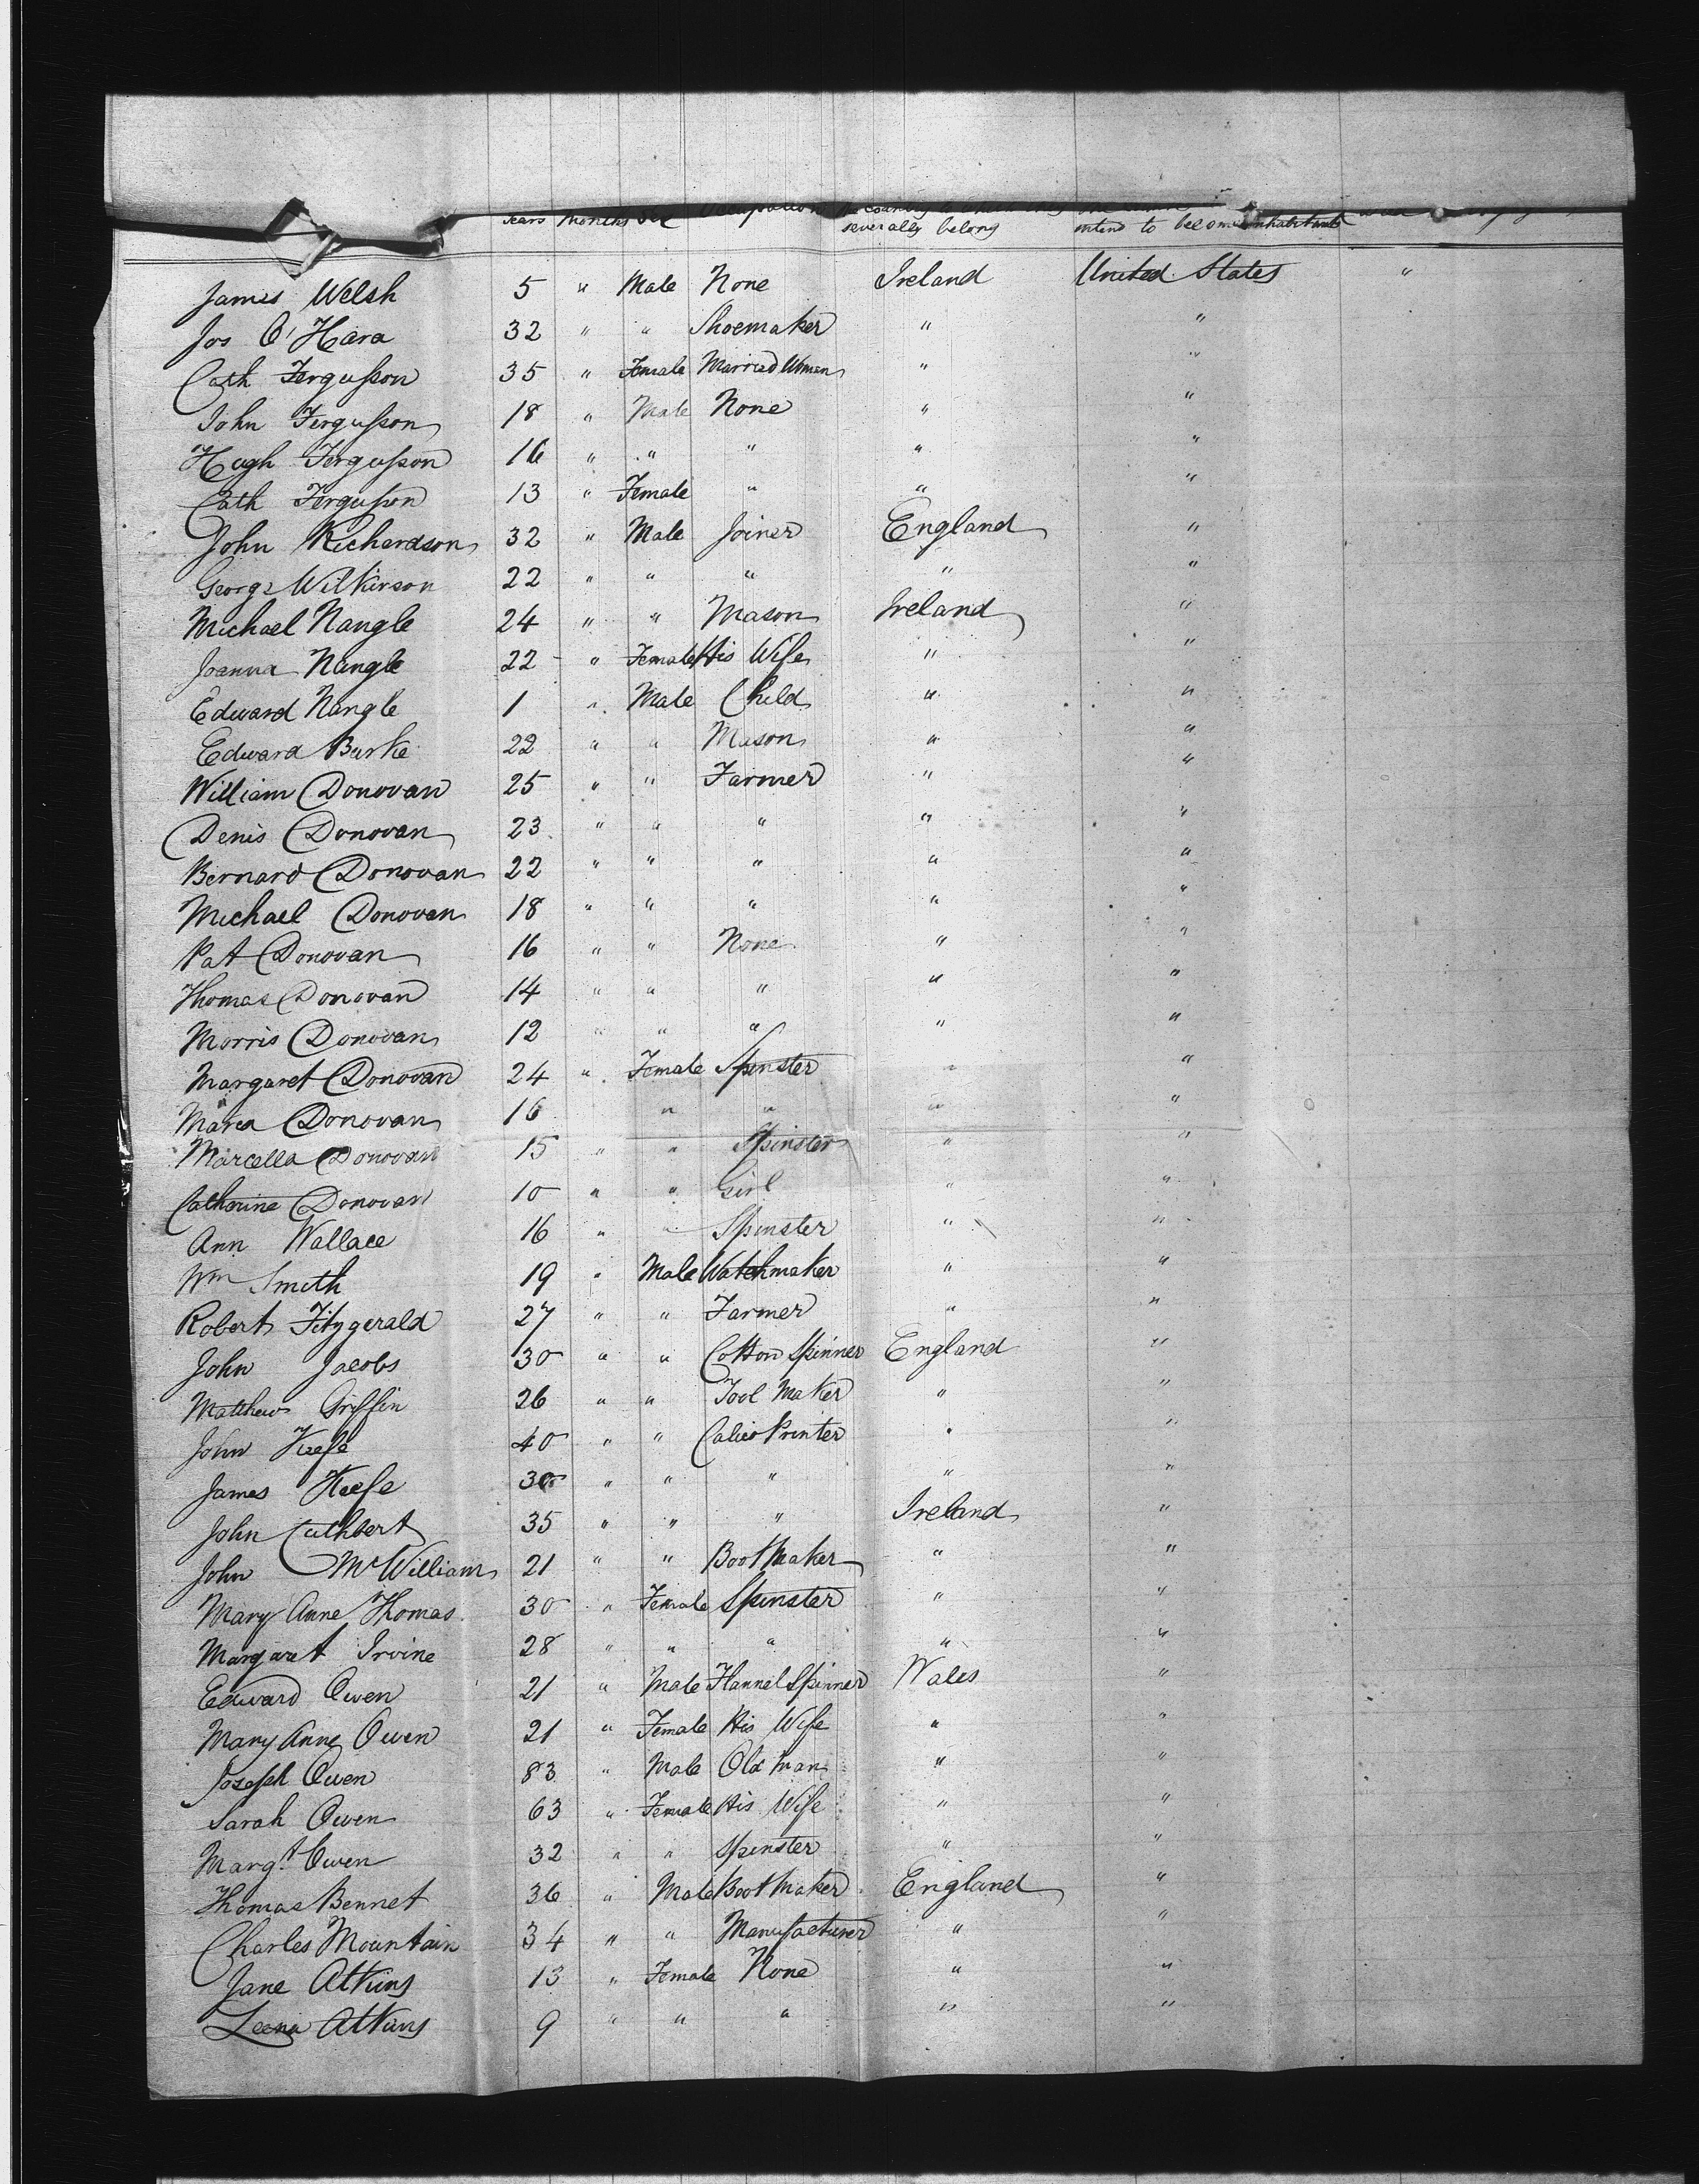 Years Months Sex Occupation
severally belong intend to become inhabitants
James Welsh 5 " Male None Ireland United States "
Jos O'Hara 32 " " Shoemaker " "
Cath Fergusson 35 " Female Married Woman " "
John Fergusson 18 " Male None " "
Hugh Fergusson 16 " " " " "
Cath Fergusson 13 " Female " " "
John Richardson 32 " Male Joiner England "
George Wilkinson 22 " " " " "
Michael Nangle 24 " " Mason Ireland "
Joanna Nangle 22 " Female His Wife " "
Edward Nangle 1 " Male Child " "
Edward Burke 22 " " Mason " "
William Donovan 25 " " Farmer " "
Denis Donovan 23 " " " " "
Bernard Donovan 22 " " " " "
Michael Donovan 18 " " " " "
Pat Donovan 16 " " None " "
Thomas Donovan 14 " " " " "
Morris Donovan 12 " " " " "
Margaret Donovan 24 " Female Spinster " "
Maria Donovan 16 " " " "
Marcella Donovan 15 " " Spinster " "
Catherine Donovan 10 " " Girl " "
Ann Wallace 16 " " Spinster " "
Wm Smith 19 " Male Watchmaker " "
Robert Fitzgerald 27 " " Farmer " "
John Jacobs 30 " " Cotton Spinner England "
Matthew Griffin 26 " " Tool Maker " "
John Keefe 40 " " Calico Printer " "
James Keefe 30 " " " " "
John Cuthbert 35 " " " Ireland "
John McWilliam 21 " " Boot Maker " "
Mary Anne Thomas 30 " Female Spinster " "
Margaret Irvine 28 " " " " "
Edward Owen 21 " Male Flannel Spinner Wales "
Mary Anne Owen 21 " Female His Wife " "
Joseph Owen 83 " Male Old Man " "
Sarah Owen 63 " Female His Wife " "
Margt Owen 32 " " Spinster " "
Thomas Bennet 36 " Male Boot Maker England "
Charles Mountain 34 " " Manufacturer " "
Jane Atkins 13 " Female None " "
Atkins 9 " " " " "